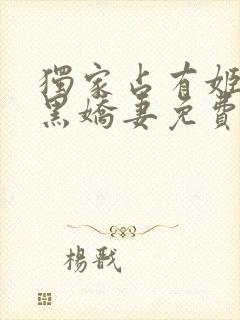 獨家占有姬
黑嬌妻免費
楊戩